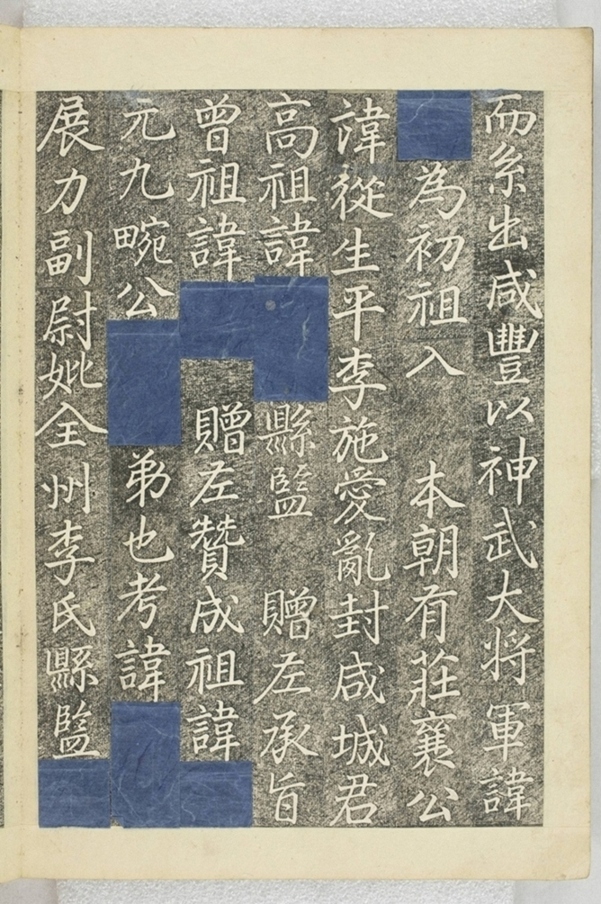 而系出咸豐以神武大将軍諱
為初祖入 本朝有莊襄公
諱從生平李施愛亂封咸城君
高祖諱 縣監 贈左承旨
曾祖諱 贈左贊成祖諱
元九畹公 弟也考諱
展力副尉妣全州李氏縣監